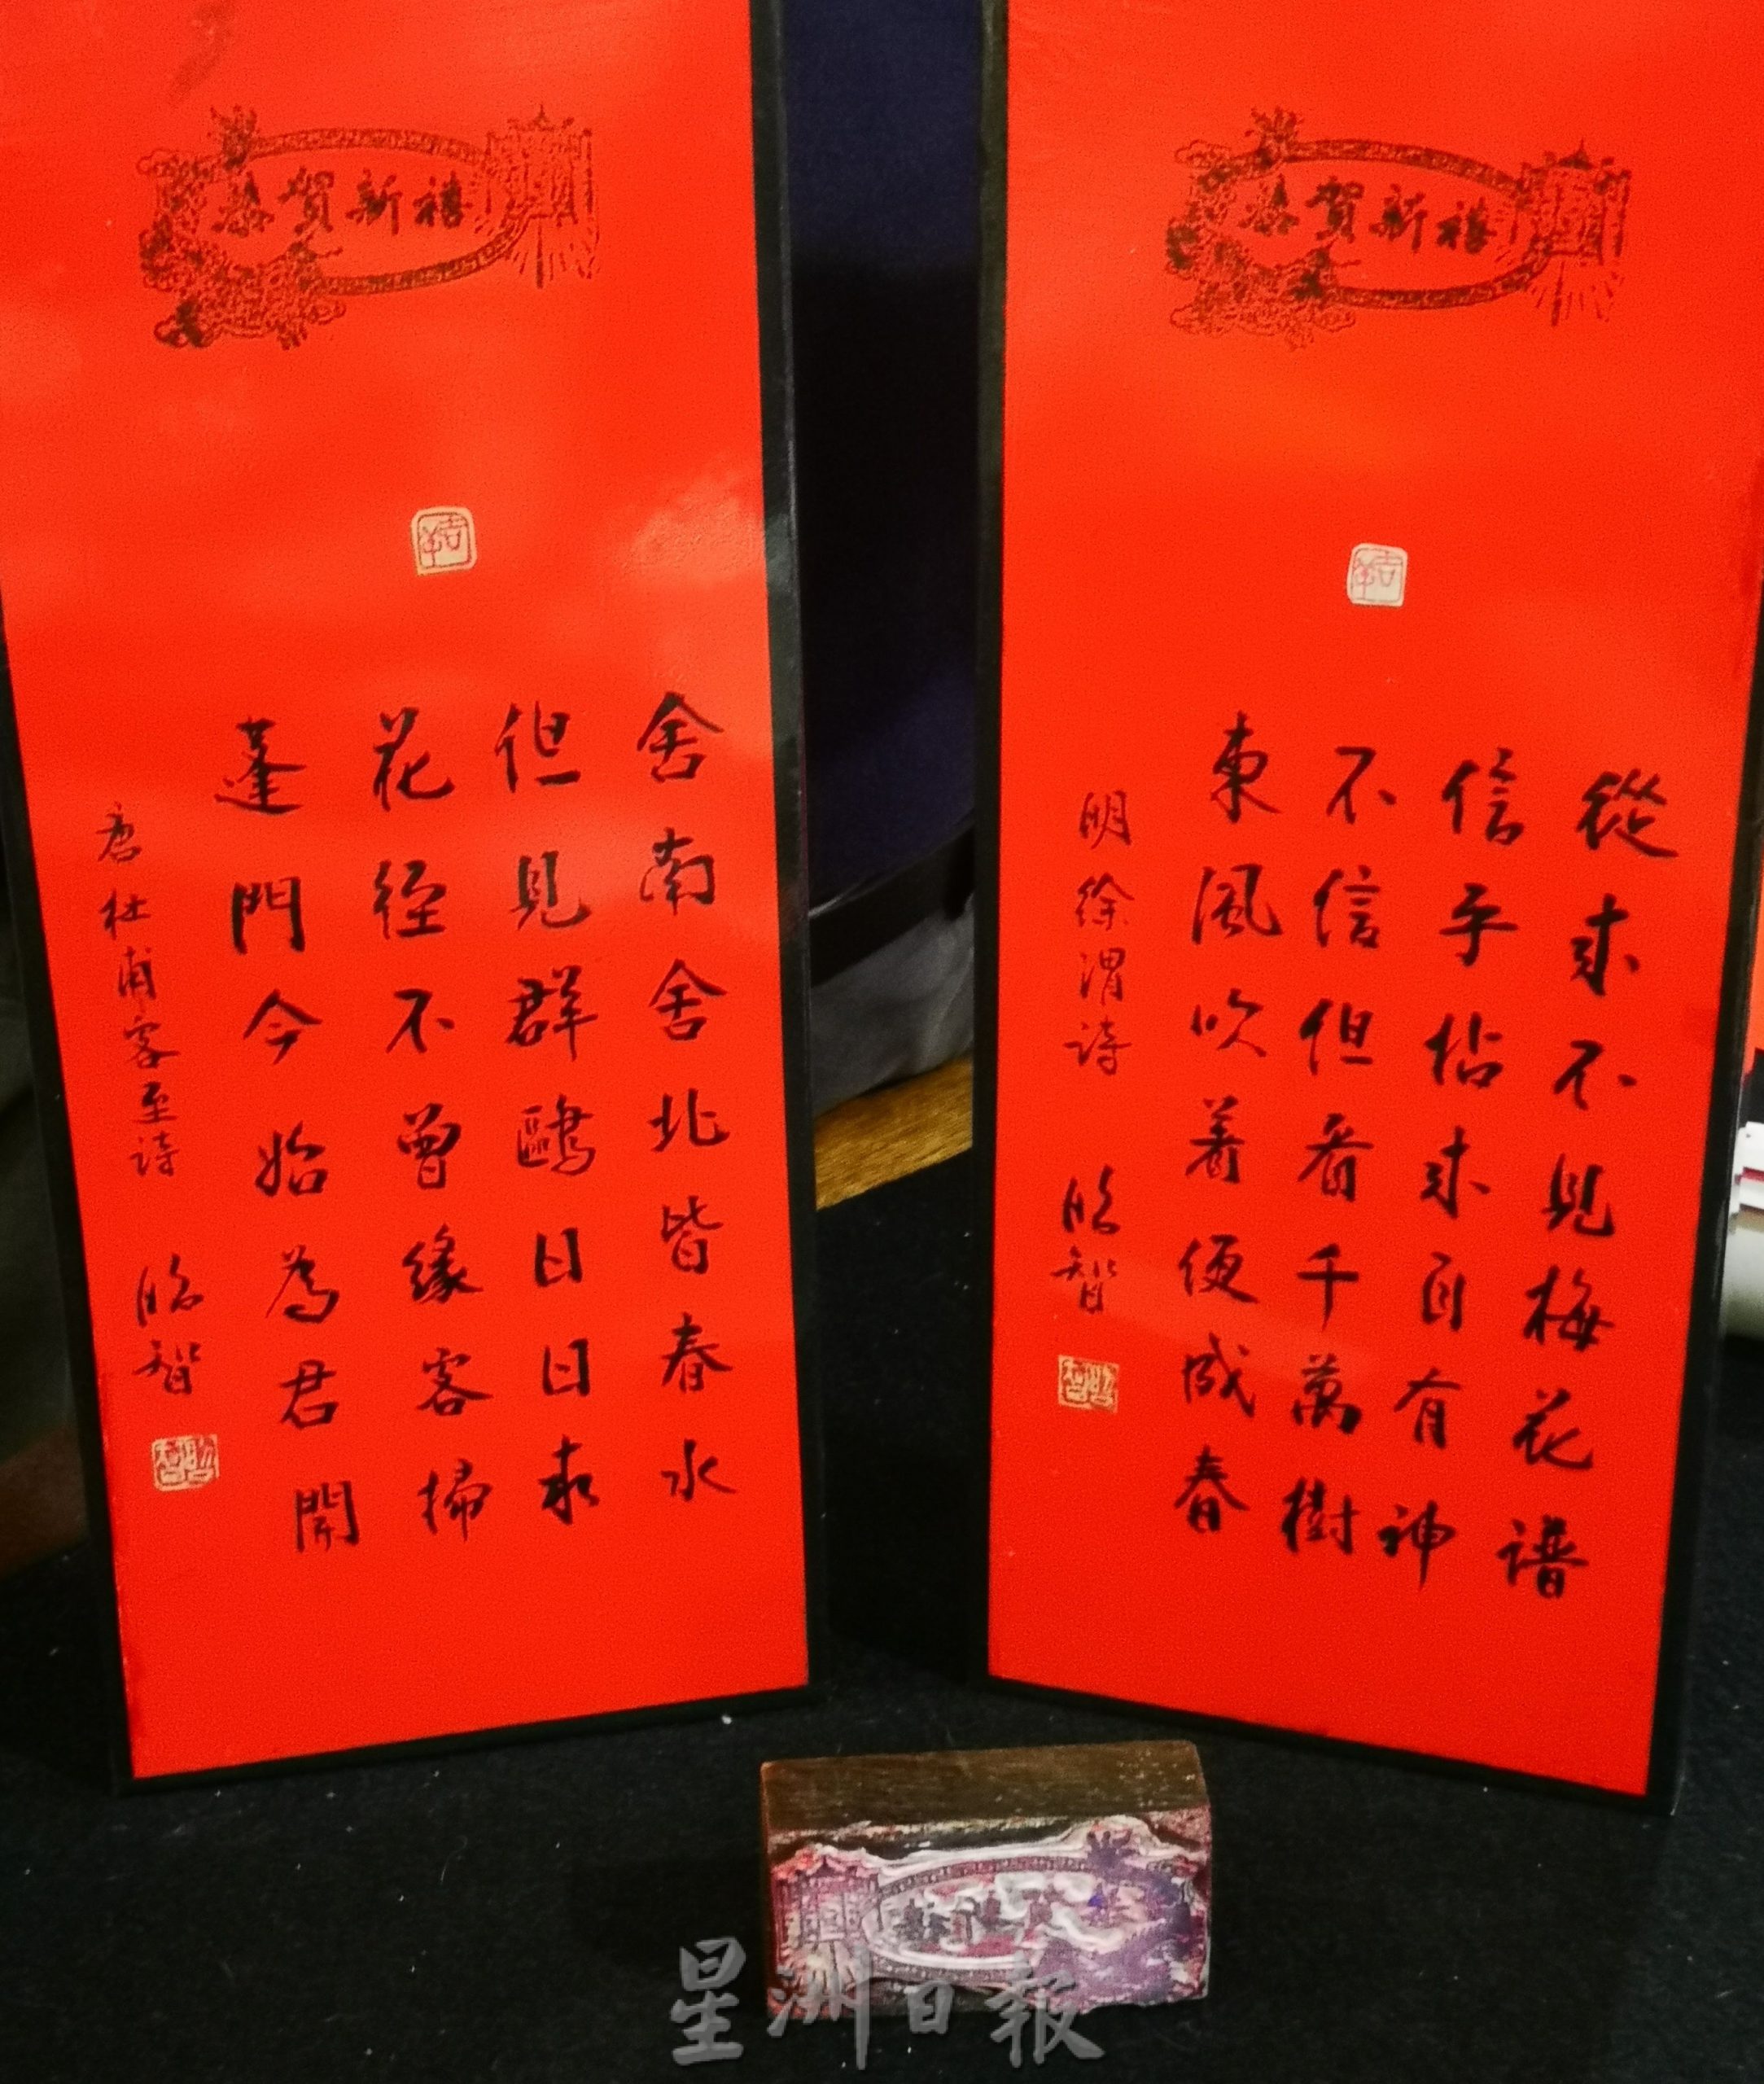 恭賀新禧
吉羊
舍南舍北皆春水
但見群鷗日日來
花徑不曾緣客掃
蓬門今始為君開
唐杜甫客至詩
恭賀新禧
吉羊
從來不見梅花譜
信手拈來自有神
不信但看千萬樹
東風吹着便成春
明徐渭詩
星洲日報